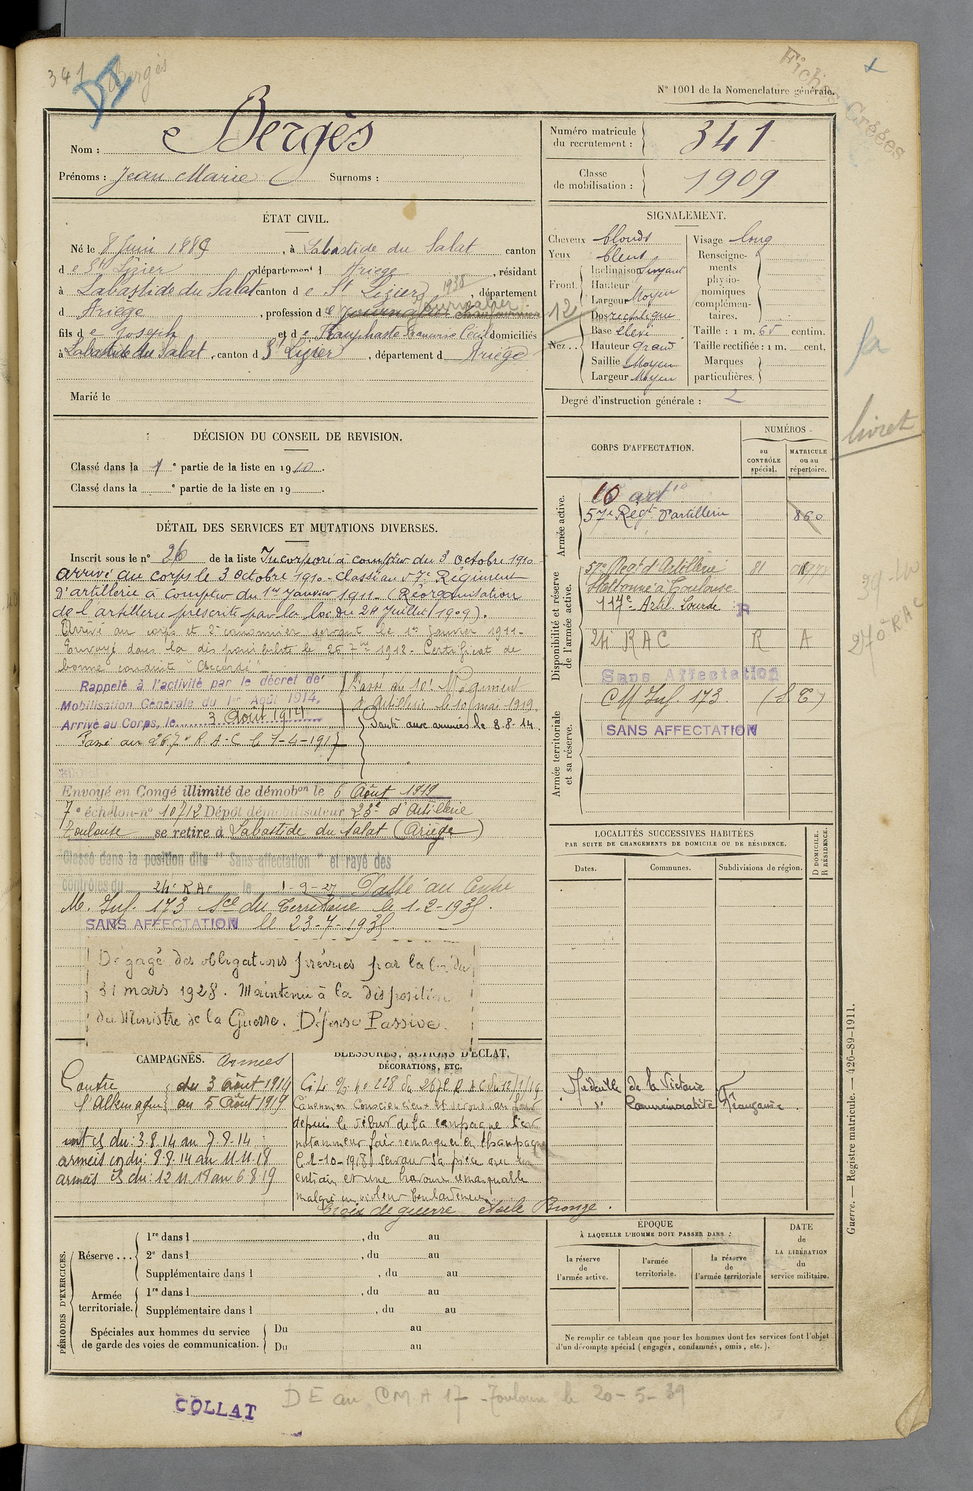 341
Bergès
N° 1001 de la Nomenclature générale.
Nom : Bergès
Prénoms : Jean Marie Surnoms :
Numéro matricule du recrutement : 341
Classe de mobilisation : 1909
ÉTAT CIVIL.
Né le 8 Juin 1889, à Labastide du Salat canton
de St Lizier, département d Ariège, résidant
à Labastide du Salat canton de St Lizier, département
d Ariège, profession de
fils de Joseph et de domiciliés
à Labastide du Salat, canton d St Lizier, département d Ariège
Marié le
SIGNALEMENT.
Cheveux blonds
Yeux bleus
Front. Inclinaison fuyant
Hauteur
Largeur Moyen
Nez. Dos rectiligne
Base élevé
Hauteur Grand
Saillie Moyen
Largeur Moyen
Visage long
Renseignements physionomiques complémentaires.
Taille : 1 m. 65 centim.
Taille rectifiée : 1 m. cent.
Marques particulières.
Degré d'instruction générale : 2
livret
DÉCISION DU CONSEIL DE REVISION.
Classé dans la 1e partie de la liste en 1910.
Classé dans la e partie de la liste en 19
DÉTAIL DES SERVICES ET MUTATIONS DIVERSES.
Inscrit sous le n° 26 de la liste Incorporé à compter du 3 octobre 1910
arrivé au corps le 3 octobre 1910. Classé au 57e Régiment
d'artillerie à compter du 1er Janvier 1911. (Réorganisation
de l'artillerie prescrite par la loi du 24 Juillet 1909).
Arrivé au corps et 2e canonnier servant le 1er Janvier 1911.
Envoyé dans la disponibilité le 25 7bre 1912. Certificat de
bonne conduite "Accordé"
Rappelé à l'activité par le décret de
Mobilisation Générale du 1er Août 1914.
Arrivé au Corps, le 3 Août 1914
Passé au 10e Régiment
d'Artillerie le 10 mai 1919.
Parti aux armées le 8-8-14
Passé au 267e R.A.C le 1-4-1917
Envoyé en Congé illimité de démobon le 6 Août 1919
7e échelon n° 10712 Dépôt démobilisateur 23e d'Artillerie
Toulouse se retire à Labastide du Salat (Ariège)
Classé dans la position dite "Sans affectation" et rayé des
contrôles du 24e RAC le 1-9-27 Passé au Centre
M. Inf. 173 Sce du Territoire le 1-2-1935.
SANS AFFECTATION le 23-7-1935.
Dégagé des obligations prévues par la loi du
31 mars 1928. Maintenu à la disposition
du Ministre de la Guerre. Défense Passive.
CORPS D'AFFECTATION.
NUMÉROS
au CONTRÔLE spécial.
MATRICULE ou au répertoire.
Armée active.
10 art
57e Régt d'artillerie 860
Disponibilité et réserve de l'armée active.
57e Regt d'Artillerie 81
Stationné à Toulouse
117e Artil. Lourde R
24 RAC R A
Sans Affectation
Armée territoriale et sa réserve.
CM Inf. 173 (S.T)
SANS AFFECTATION
LOCALITÉS SUCCESSIVES HABITÉES
PAR SUITE DE CHANGEMENTS DE DOMICILE OU DE RÉSIDENCE.
Dates. Communes. Subdivisions de région.
D DOMICILE. R RÉSIDENCE.
Médaille de la Victoire
" Commémorative Française.
CAMPAGNES. Armées
Contre l'Allemagne du 3 Août 1914
au 5 Août 1919
int cs du : 3.8.14 au 7.8.14
armées cs du : 8.8.14 au 11.11.18
armées cs du : 12.11.18 au 6.8.19
BLESSURES, ACTIONS D'ÉCLAT,
DÉCORATIONS, ETC.
Canonnier consciencieux et
depuis le début de la campagne s'est
notamment fait remarquer en champagne
malgré un violent bombardement
Croix de guerre étoile Bronze.
PÉRIODES D'EXERCICES.
Réserve . . . 1re dans l , du au
2e dans l , du au
Supplémentaire dans l , du au
Armée territoriale. 1re dans l , du au
Supplémentaire dans l , du au
Spéciales aux hommes du service de garde des voies de communication. Du au
Du au
ÉPOQUE
À LAQUELLE L'HOMME DOIT PASSER DANS :
la réserve de l'armée active.
l'armée territoriale.
la réserve de l'armée territoriale
DATE de LA LIBÉRATION du service militaire.
Ne remplir ce tableau que pour les hommes dont les services font l'objet
d'un décompte spécial (engagés, condamnés, omis, etc.).
Guerre. — Registre matricule. — 426-89-1911.
COLLAT
DE au CMA 17 Toulouse le 20-5-39